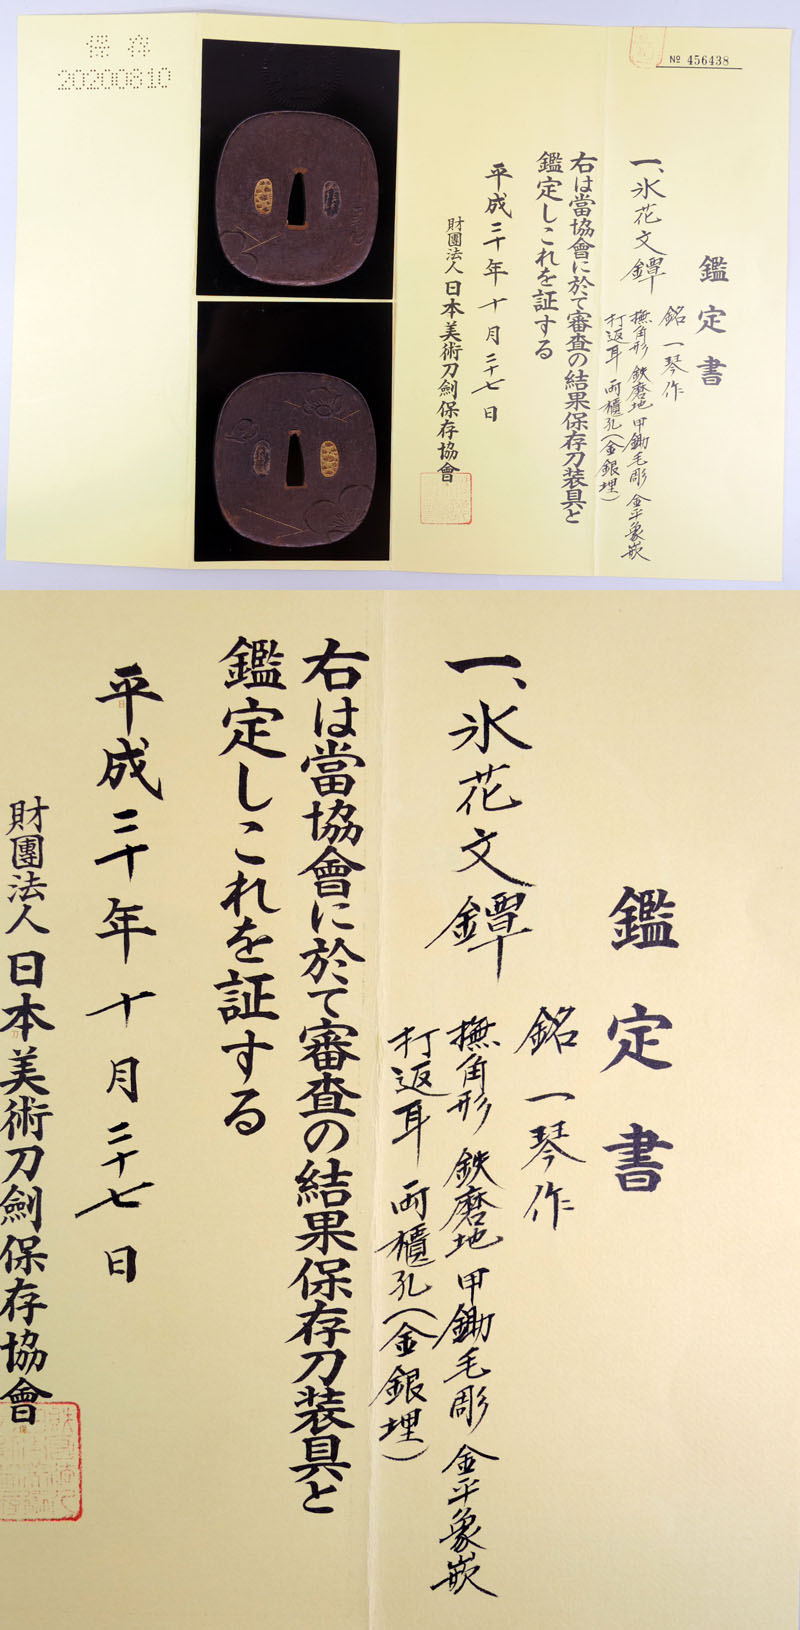 保存
20200810
№ 456438
鑑定書
一、氷花文鐔
銘 一琴作
撫角形 鉄磨地 甲鋤毛彫 金平象嵌
打返耳 両櫃孔（金銀埋）
右は當協會に於て審査の結果保存刀装具と
鑑定しこれを証する
平成三十年十月二十七日
財團法人 日本美術刀劍保存協會
鑑定書
一、氷花文鐔
銘 一琴作
撫角形 鉄磨地 甲鋤毛彫 金平象嵌
打返耳 両櫃孔（金銀埋）
右は當協會に於て審査の結果保存刀装具と
鑑定しこれを証する
平成三十年十月二十七日
財團法人 日本美術刀劍保存協會